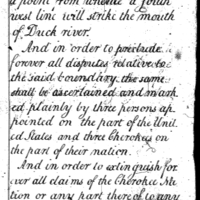 a point from whence a south
west line will strike the mouth
of Duck river.
And in order to preclude
forever all disputes relative to
the said boundary the same
shall be ascertained and mark
ed plainly by three persons ap
pointed on the part of the Unit
ed States and three Cherokees on
the part of their nation.
And in order to extinguish for
ever all claims of the Cherokee Na
tion or any part thereof to any